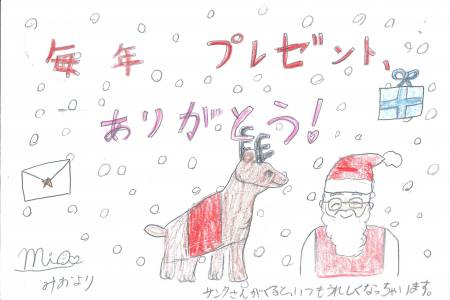 毎年 プレゼント、
ありがとう!
Mio
みおより
サンタさんがくると、いつもうれしくなっちゃいます。